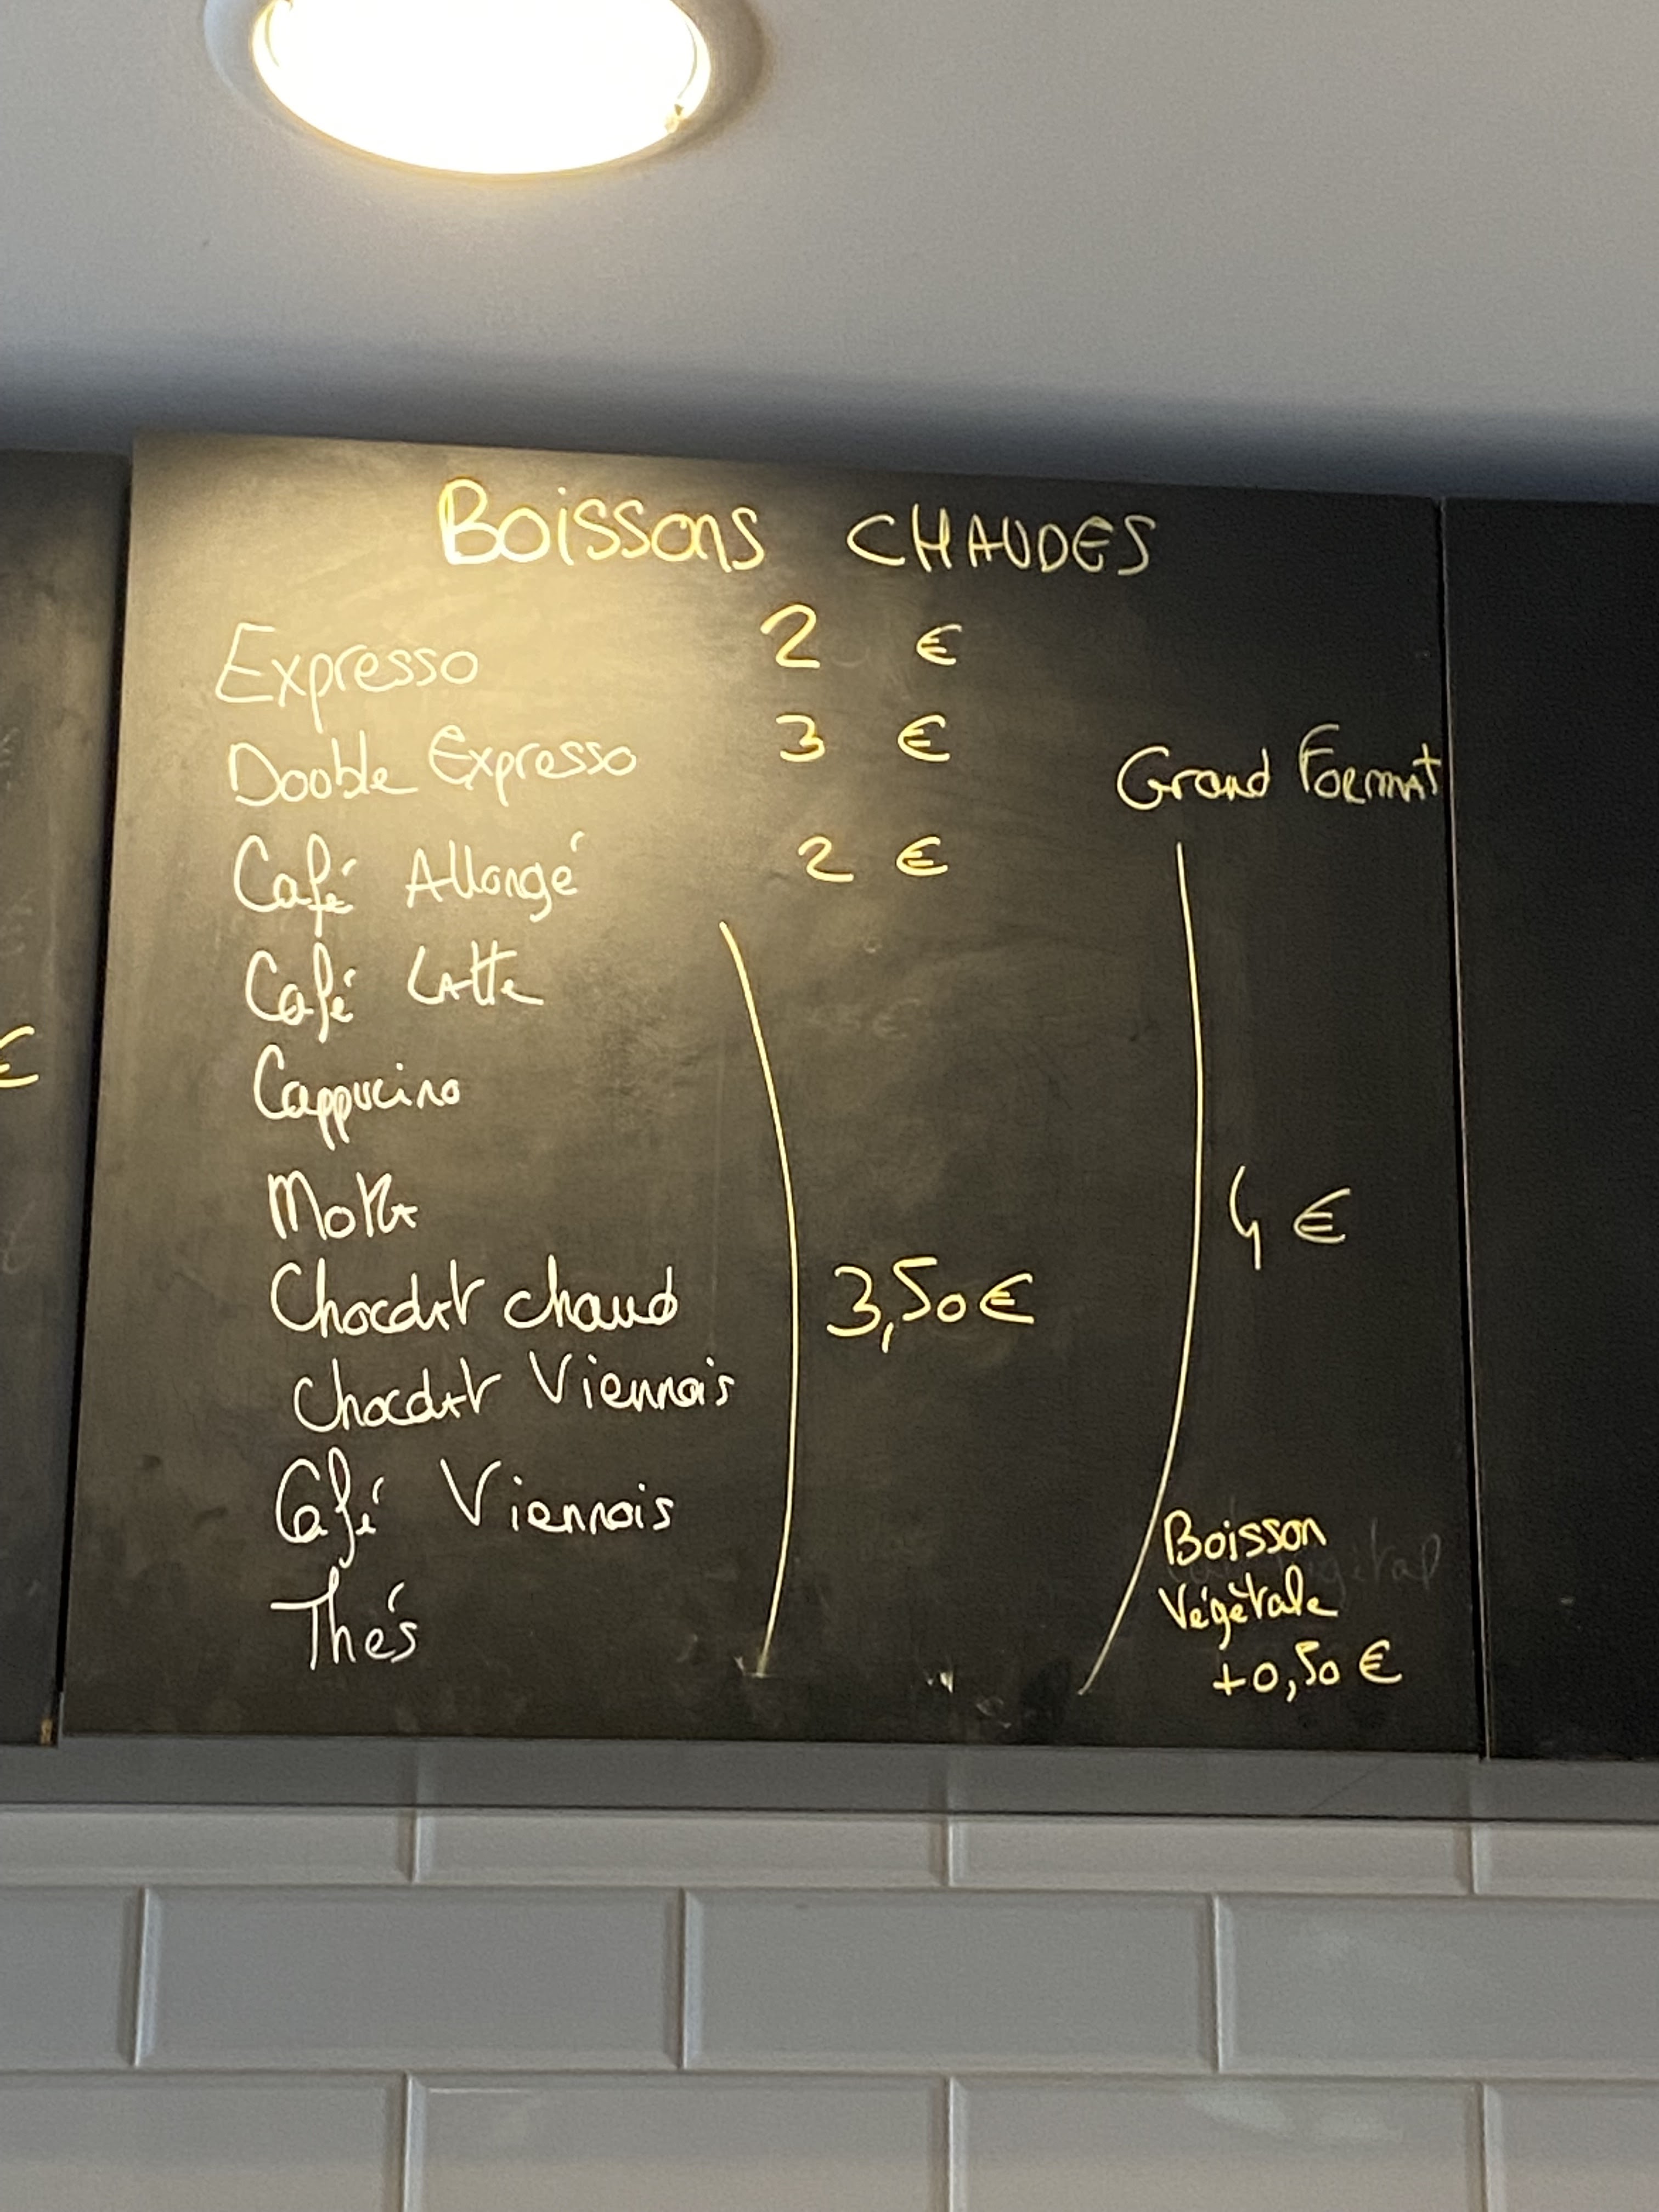 BOISSONS CHAUDES
Expresso 2 €
Double Expresso 3 €
Grand Format
Café Allongé 2 €
Café Latte
Cappucino
Moka
4 €
Chocolat chaud
3,50 €
Chocolat Viennois
Café Viennois
Thés
Boisson
Végétale
+0,50 €
€